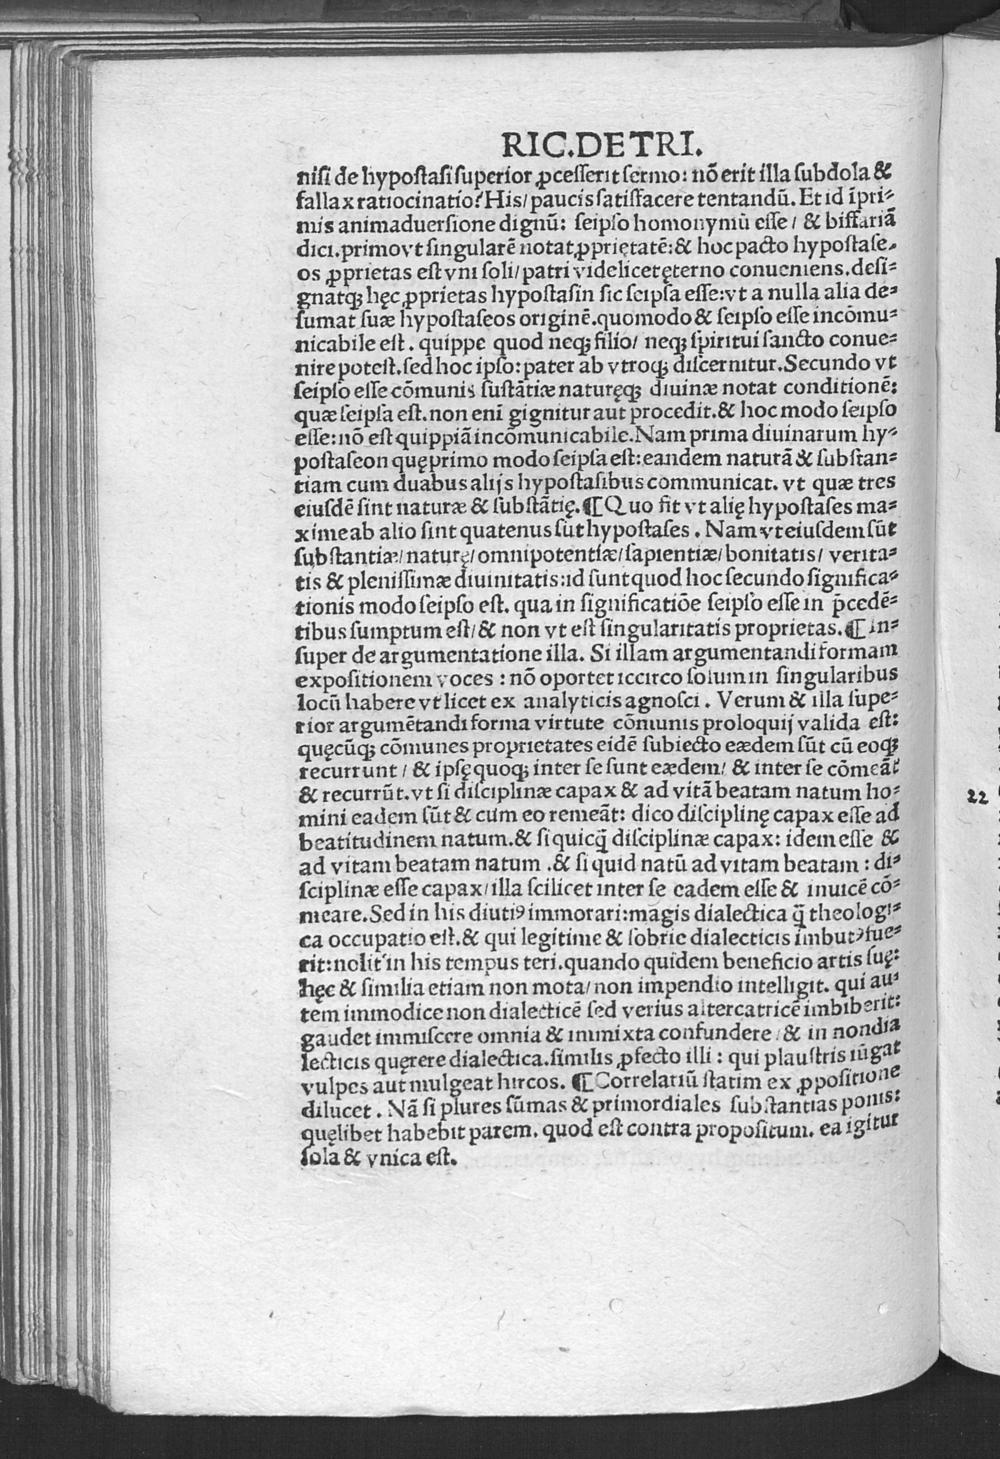 RIC.DE TRI.
nisi de hypostasi superior ꝓcesserit sermo: nō erit illa subdola &
fallax ratiocinatio? His/ paucis satisfacere tentandū. Et id īpri-
mis animaduersione dignū: seipso homonymū esse/ & biffariā
dici. primo vt singularē notat ꝓprietatē: & hoc pacto hypostase-
os ꝓprietas est vni soli/ patri videlicet ęterno conueniens. desi-
gnatqꝫ hęc ꝓprietas hypostasin sic seipsa esse: vt a nulla alia de-
sumat suæ hypostaseos originē. quomodo & seipso esse incōmu-
nicabile est. quippe quod neqꝫ filio/ neqꝫ spiritui sancto conue-
nire potest. sed hoc ipso: pater ab vtroqꝫ discernitur. Secundo vt
seipso esse cōmunis sustātiæ naturęqꝫ diuinæ notat conditionē:
quæ seipsa est. non enī gignitur aut procedit. & hoc modo seipso
esse: nō est quippiā incōmunicabile. Nam prima diuinarum hy-
postaseon quę primo modo seipsa est: eandem naturā & substan-
tiam cum duabus alijs hypostasibus communicat. vt quæ tres
eiusdē sint naturæ & substātię. ¶ Quo fit vt alię hypostases ma-
xime ab alio sint quatenus sūt hypostases. Nam vt eiusdem sūt
substantiæ/ naturę/ omnipotentiæ/ sapientiæ/ bonitatis/ verita-
tis & plenissimæ diuinitatis: id sunt quod hoc secundo significa-
tionis modo seipso est. qua in significatiōe seipso esse in p̄cedē-
tibus sumptum est/ & non vt est singularitatis proprietas. ¶ In-
super de argumentatione illa. Si illam argumentandi formam
expositionem voces: nō oportet iccirco solum in singularibus
locū habere vt licet ex analyticis agnosci. Verum & illa supe-
rior argumētandi forma virtute cōmunis proloquij valida est:
quęcūqꝫ cōmunes proprietates eidē subiecto eædem sūt cū eoqꝫ
recurrunt/ & ipsę quoqꝫ inter se sunt eædem/ & inter se cōmeāt
& recurrūt. vt si disciplinæ capax & ad vitā beatam natum ho-
mini eadem sūt & cum eo remeāt: dico disciplinę capax esse ad
beatitudinem natum. & si quicq̄ disciplinæ capax: idem esse &
ad vitam beatam natum. & si quid natū ad vitam beatam: di-
sciplinæ esse capax/ illa scilicet inter se eadem esse & inuicē cō-
meare. Sed in his diutiꝰ immorari: magis dialectica q̄ theologi-
ca occupatio est. & qui legitime & sobrie dialecticis imbutꝰ fue-
rit: nolit in his tempus teri. quando quidem beneficio artis suę:
hęc & similia etiam non mota/ non impendio intelligit. qui au-
tem immodice non dialecticē sed verius altercatricē imbiberit:
gaudet immiscere omnia & immixta confundere/ & in nondia
lecticis quęrere dialectica. similis ꝓfecto illi: qui plaustris iūgat
vulpes aut mulgeat hircos. ¶ Correlatiū statim ex ꝓpositione
dilucet. Nā si plures sūmas & primordiales substantias ponis:
quęlibet habebit parem. quod est contra propositum. ea igitur
sola & vnica est.
22